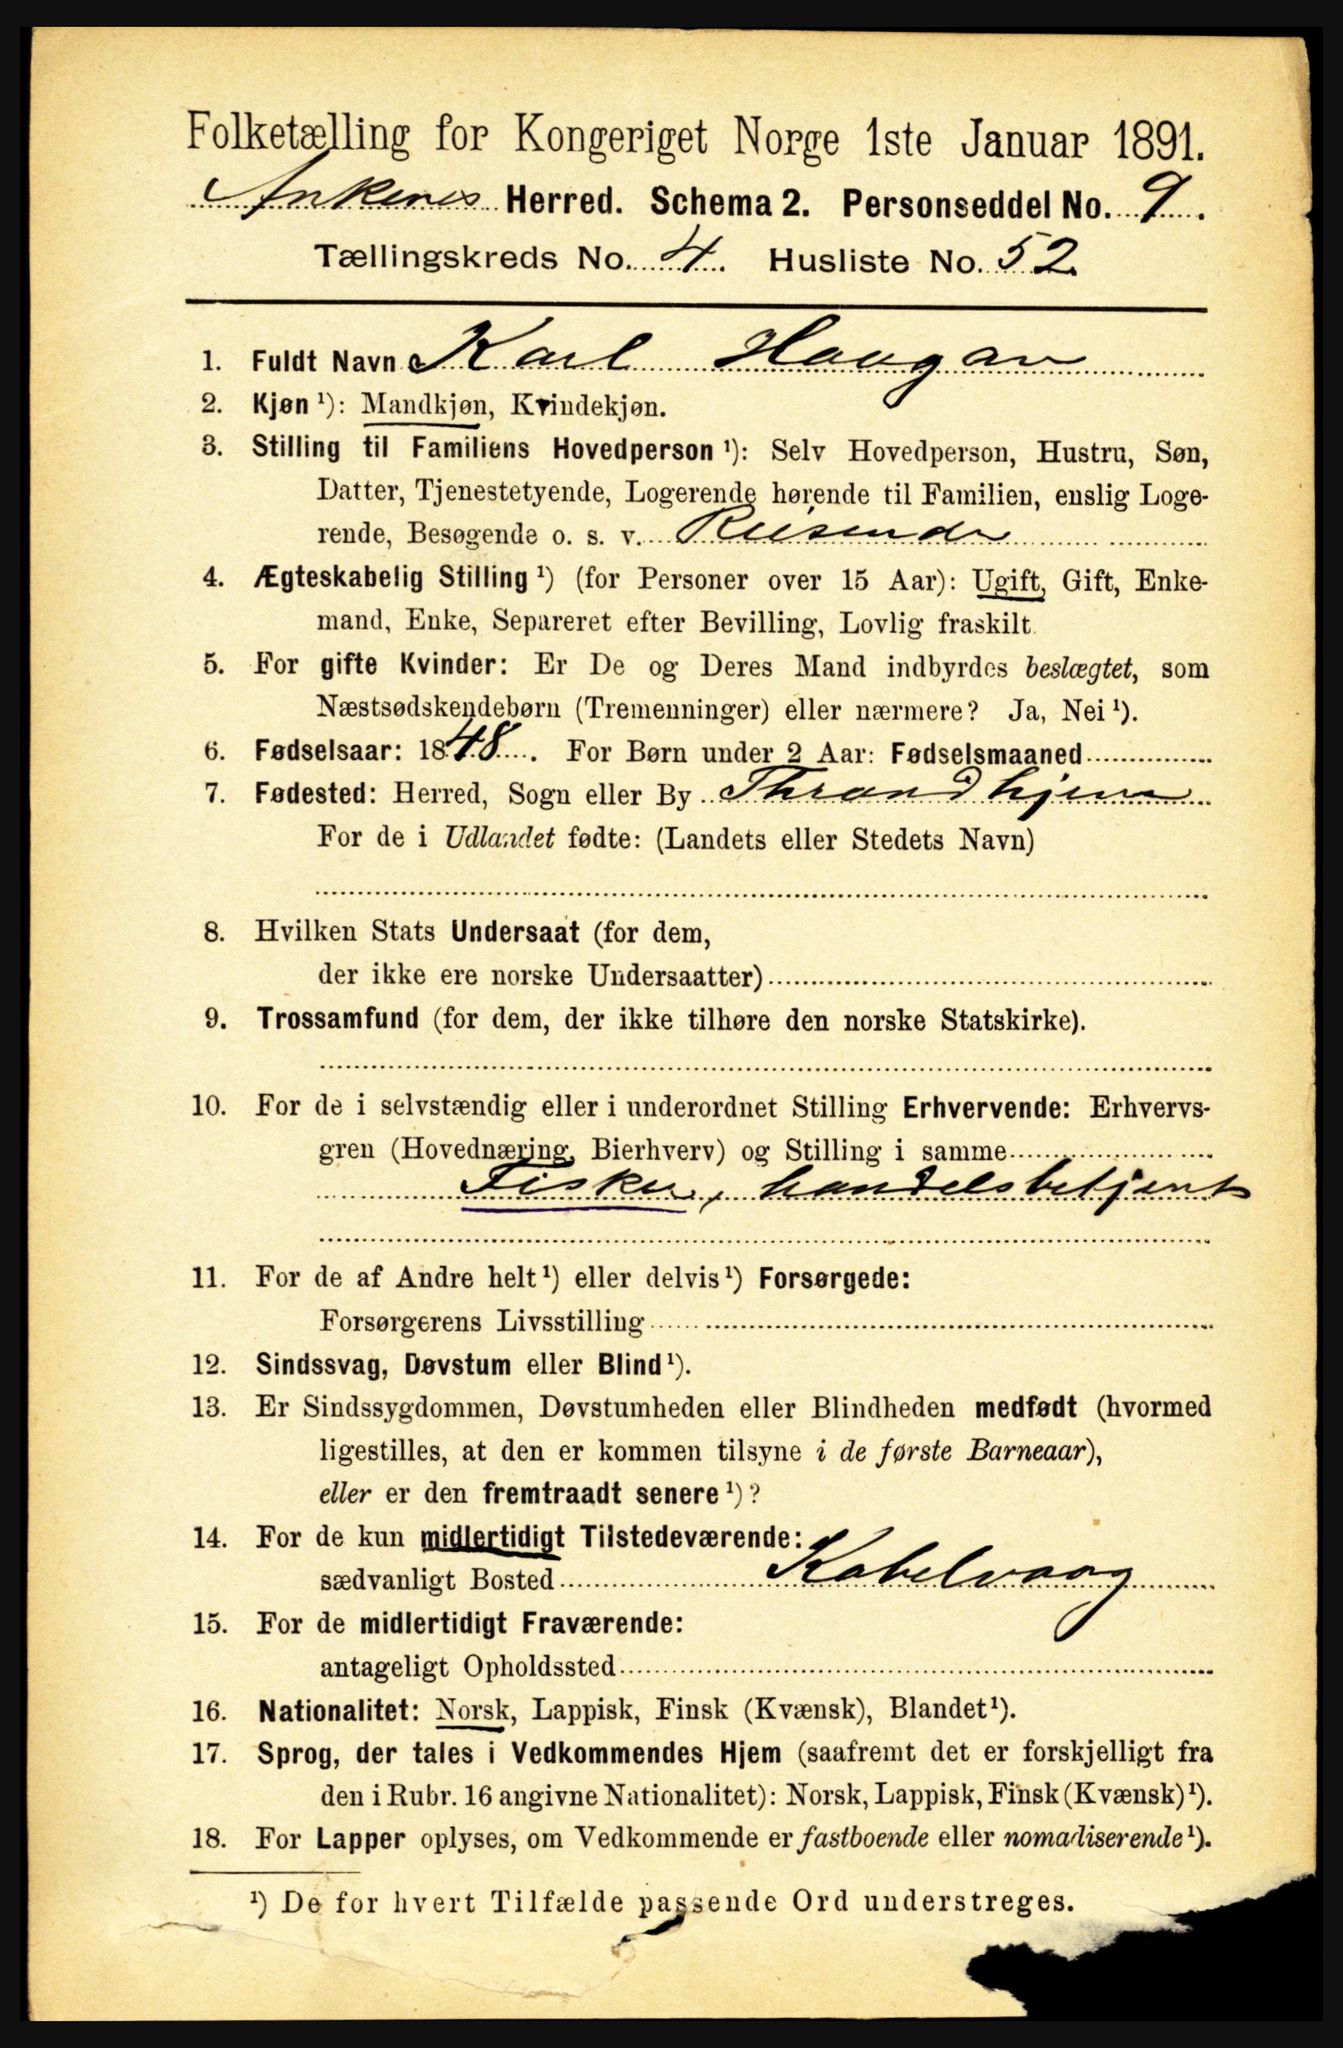 Folketælling for Kongeriget Norge 1ste Januar 1891.
Ankenes Herred. Schema 2. Personseddel No. 9.
Tællingskreds No. 4. Husliste No. 52.
1. Fuldt Navn Karl Haugan
2. Kjøn ¹): Mandkjøn, Kvindekjøn.
3. Stilling til Familiens Hovedperson ¹): Selv Hovedperson, Hustru, Søn,
Datter, Tjenestetyende, Logerende hørende til Familien, enslig Loge-
rende, Besøgende o. s. v. Reisende
4. Ægteskabelig Stilling ¹) (for Personer over 15 Aar): Ugift, Gift, Enke-
mand, Enke, Separeret efter Bevilling, Lovlig fraskilt
5. For gifte Kvinder: Er De og Deres Mand indbyrdes beslægtet, som
Næstsødskendebørn (Tremenninger) eller nærmere? Ja, Nei ¹).
6. Fødselsaar: 1848. For Børn under 2 Aar: Fødselsmaaned
7. Fødested: Herred, Sogn eller By Thrandhjem
For de i Udlandet fødte: (Landets eller Stedets Navn)
8. Hvilken Stats Undersaat (for dem,
der ikke ere norske Undersaatter)
9. Trossamfund (for dem, der ikke tilhøre den norske Statskirke).
10. For de i selvstændig eller i underordnet Stilling Erhvervende: Erhvervs-
gren (Hovednæring, Bierhverv) og Stilling i samme
Fisker, handelsbetjent
11. For de af Andre helt ¹) eller delvis ¹) Forsørgede:
Forsørgerens Livsstilling
12. Sindssvag, Døvstum eller Blind ¹).
13. Er Sindssygdommen, Døvstumheden eller Blindheden medfødt (hvormed
ligestilles, at den er kommen tilsyne i de første Barneaar),
eller er den fremtraadt senere ¹)?
14. For de kun midlertidigt Tilstedeværende:
sædvanligt Bosted Kabelvaag
15. For de midlertidigt Fraværende:
antageligt Opholdssted
16. Nationalitet: Norsk, Lappisk, Finsk (Kvænsk), Blandet ¹).
17. Sprog, der tales i Vedkommendes Hjem (saafremt det er forskjelligt fra
den i Rubr. 16 angivne Nationalitet): Norsk, Lappisk, Finsk (Kvænsk) ¹).
18. For Lapper oplyses, om Vedkommende er fastboende eller nomadiserende ¹).
¹) De for hvert Tilfælde passende Ord understreges.